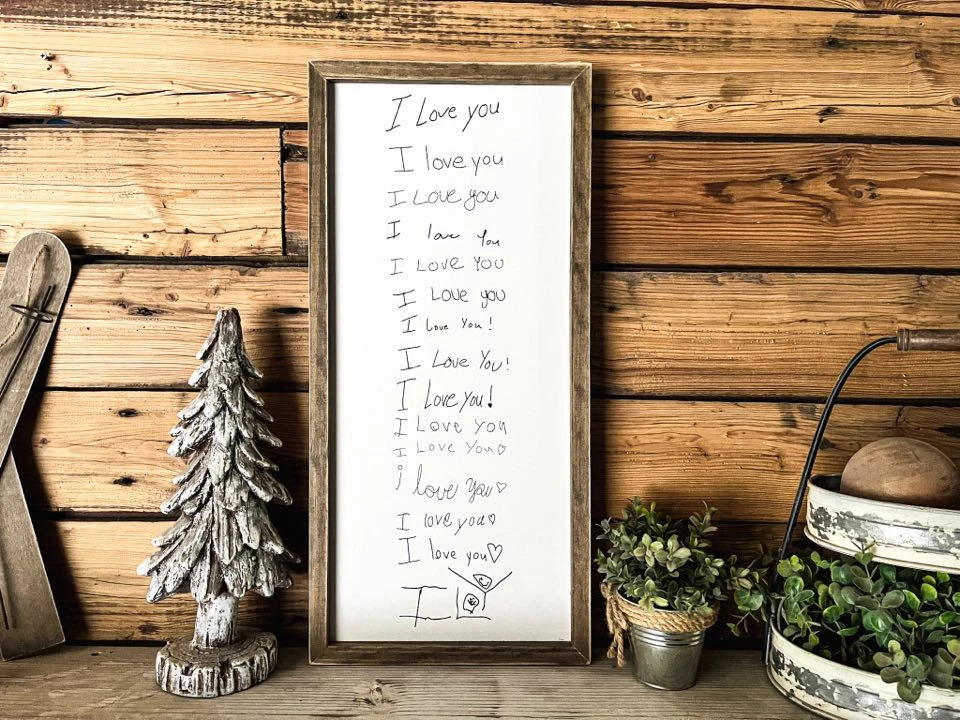 I Love you
I love you
I Love you
I love You
I Love You
I Love you
I Love You!
I Love You!
I Love you!
I Love you
I Love You♡
i love you♡
I love you♡
I love you♡
I